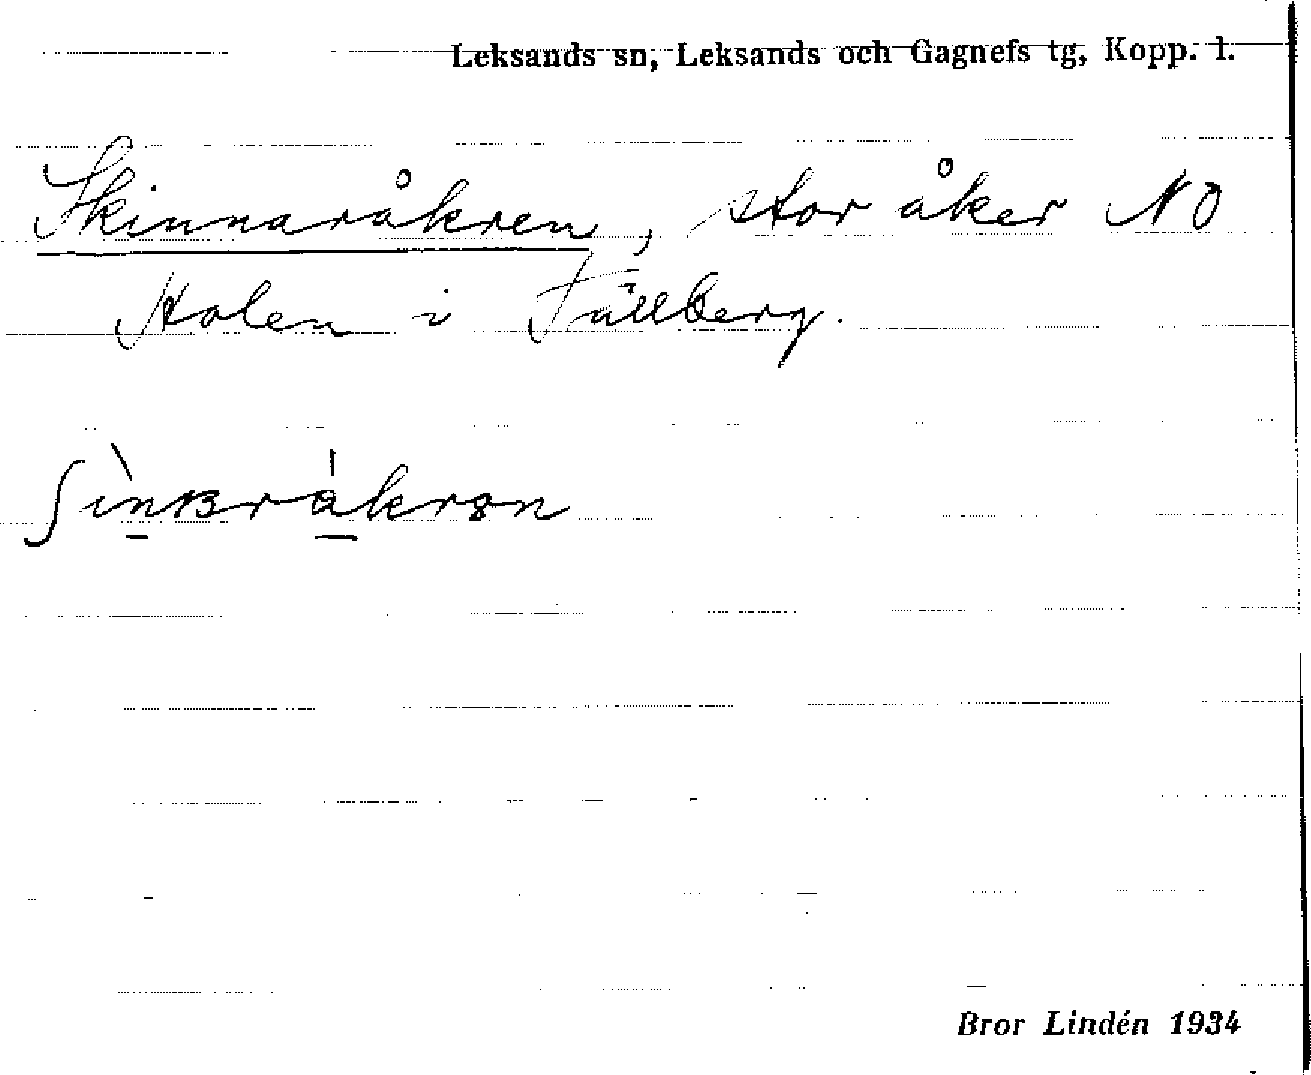 Leksands sn, Leksands och Gagnefs tg, Kopp. l.
Skinnaråkren, stor åker NO
Holen i Tällberg.
ʃìnʙråkrən
Bror Lindén 1934